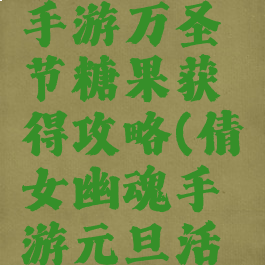 手游万圣
节糖果获
得攻略(倩
女幽魂手
游元旦活